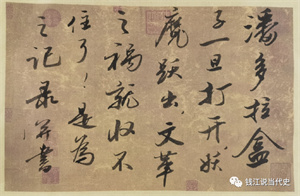 潘多拉盒
子一旦打开，妖
魔跃出，文革
之祸就收不
住了！是为
之记录并书
钱江说当代史